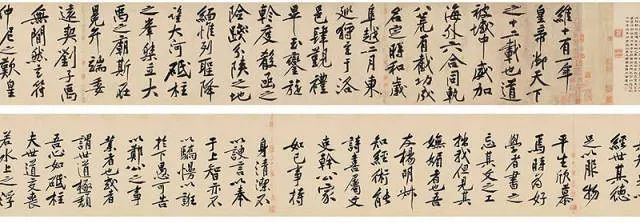 維十有一年
皇帝御天下
之十二載也道
被域中威加
海外六合同軌
八荒有截功成
名遂時和歲
阜越二月東
巡狩至于洛
邑肆覲禮
畢玉鑾旋
軫度殽函之
險踐分陝之地
緬惟列聖降
望大河砥柱
之峯桀立大
禹之廟斯在
冕弁端委
遠契劉子禹
無間然玄符
仲尼之歎皇
經世其德
足以服物
平生欣慕
焉時為好
學者書之
忘其文之工
拙我但見其
嫵媚者也吾
友楊明叔
知經術能
詩善屬文
吏幹公家
如己事持
身清潔不
以諛言以奉
于上智亦不
以驕慢以誑
於下愚可告
以鄭公之事
業者也或者
謂世道極頹
吾心如砥柱
夫世道交喪
若水上之浮